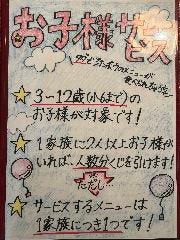 お子様サービス
★3~12歳(小6まで)の
お子様が対象です!
★1家族に2人以上お子様が
いれば、人数分くじを引けます!
ただし…
★サービスするメニューは
1家族につき1つです!